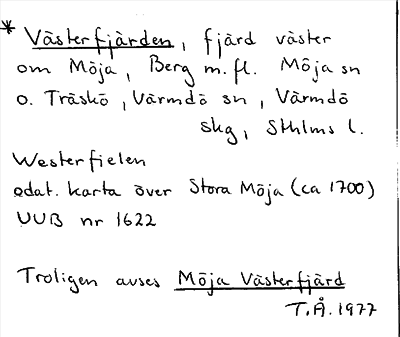 * Västerfjärden, fjärd väster
om Möja, Berg m.fl. Möja sn
o. Träskö, Värmdö sn, Värmdö
skg, Sthlms l.
Westerfielen
odat. karta över Stora Möja (ca 1700)
UUB nr 1622
Troligen avses Möja Västerfjärd
T.Å. 1977